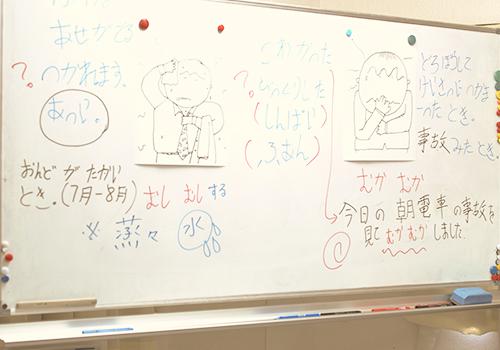 あせがでる
?。つかれます。
あつい。
おんどがたかい
とき。(7月-8月)
むし むしする
※ 蒸々 水
こわかった
?。びっくりした
(しんぱい)
(ふあん)
どろぼうして
けいさつにつかま
ったとき。
事故みたとき。
むか むか
今日の朝電車の事故を
見てむかむかしました